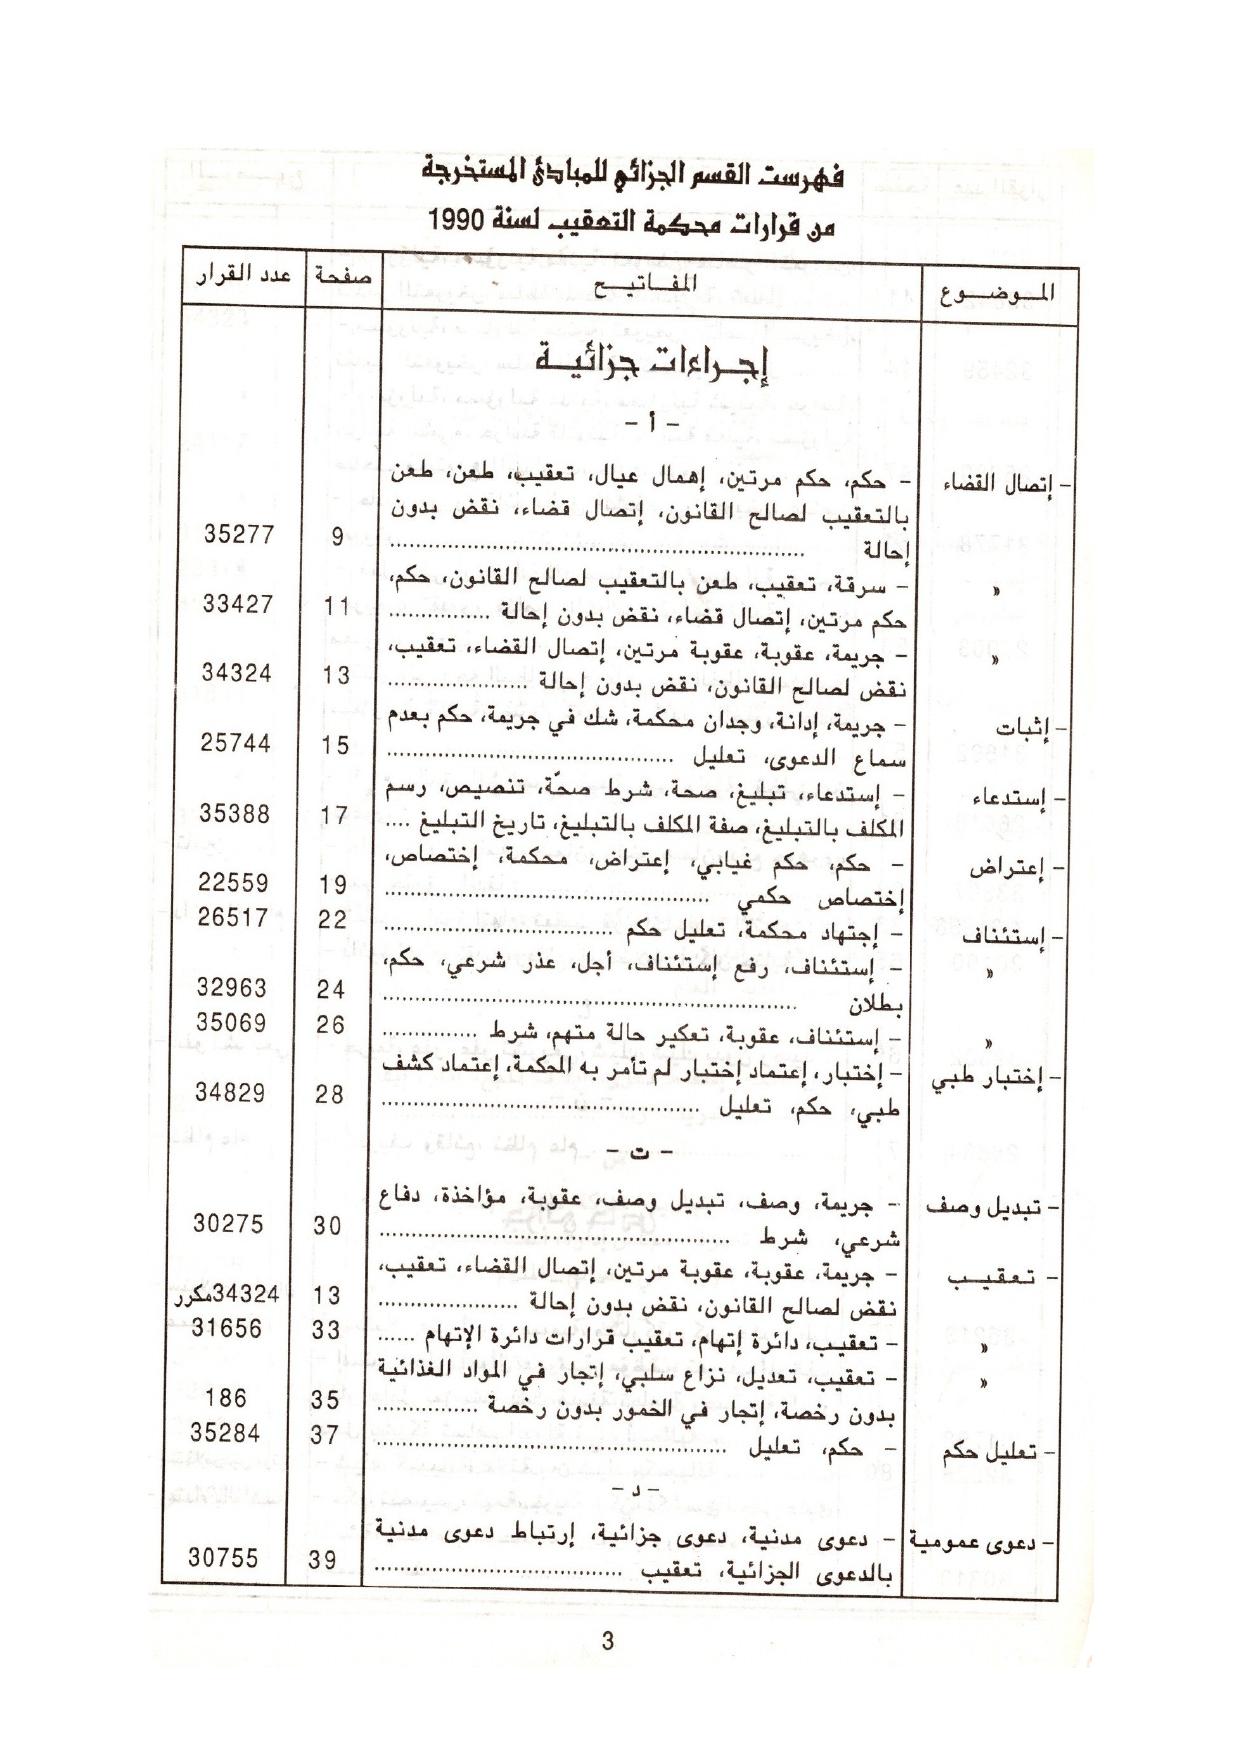 فهرست القسم الجزائي للمبادئ المستخرجة
من قرارات محكمة التعقيب لسنة 1990
الموضوع المفاتيح صفحة عدد القرار
إجراءات جزائية
- أ -
- إتصال القضاء - حكم، حكم مرتين، إهمال عيال، تعقيب، طعن، طعن
بالتعقيب لصالح القانون، إتصال قضاء، نقض بدون
إحالة ........ 9 35277
« - سرقة، تعقيب، طعن بالتعقيب لصالح القانون، حكم،
حكم مرتين، إتصال قضاء، نقض بدون إحالة ........ 11 33427
« - جريمة، عقوبة، عقوبة مرتين، إتصال القضاء، تعقيب،
نقض لصالح القانون، نقض بدون إحالة ........ 13 34324
- إثبات - جريمة، إدانة، وجدان محكمة، شك في جريمة، حكم بعدم
سماع الدعوى، تعليل ........ 15 25744
- إستدعاء - إستدعاء، تبليغ، صحة، شرط صحّة، تنصيص، رسم
المكلف بالتبليغ، صفة المكلف بالتبليغ، تاريخ التبليغ .... 17 35388
- إعتراض - حكم، حكم غيابي، إعتراض، محكمة، إختصاص،
إختصاص حكمي ........ 19 22559
- إستئناف - إجتهاد محكمة، تعليل حكم ........ 22 26517
« - إستئناف، رفع إستئناف، أجل، عذر شرعي، حكم،
بطلان ........ 24 32963
« - إستئناف، عقوبة، تعكير حالة متهم، شرط ........ 26 35069
- إختبار طبي - إختبار، إعتماد إختبار لم تأمر به المحكمة، إعتماد كشف
طبي، حكم، تعليل ........ 28 34829
- ت -
- تبديل وصف - جريمة، وصف، تبديل وصف، عقوبة، مؤاخذة، دفاع
شرعي، شرط ........ 30 30275
- تعقيب - جريمة، عقوبة، عقوبة مرتين، إتصال القضاء، تعقيب،
نقض لصالح القانون، نقض بدون إحالة ........ 13 34324مكرر
« - تعقيب، دائرة إتهام، تعقيب قرارات دائرة الإتهام ...... 33 31656
« - تعقيب، تعديل، نزاع سلبي، إتجار في المواد الغذائية
بدون رخصة، إتجار في الخمور بدون رخصة ........ 35 186
- تعليل حكم - حكم، تعليل ........ 37 35284
- د -
- دعوى عمومية - دعوى مدنية، دعوى جزائية، إرتباط دعوى مدنية
بالدعوى الجزائية، تعقيب ........ 39 30755
3